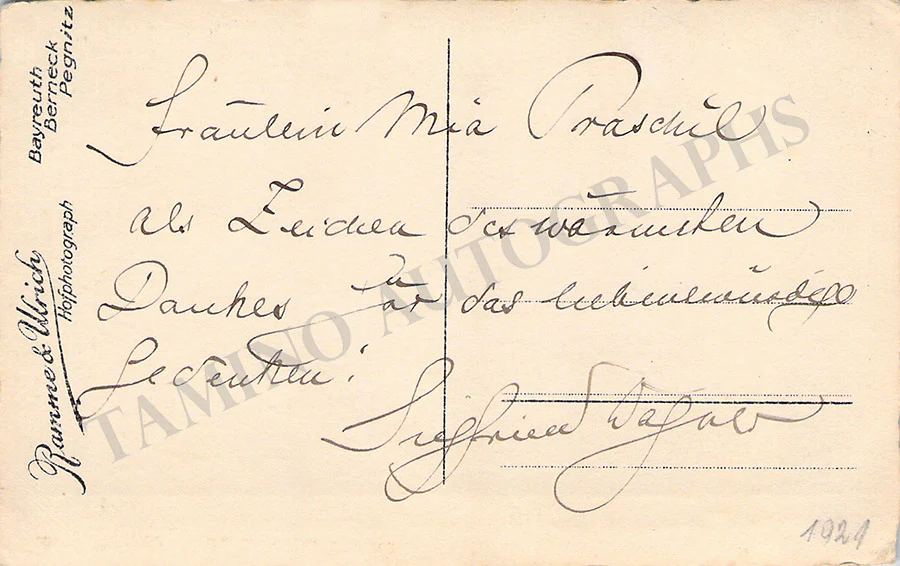 Fräulein Mia Praschil
als Zeichen des wärmsten
Dankes für das liebenswürdige
Gedenken!
Siegfried Wagner
1921
Ramme & Ulrich
Hofphotograph
Bayreuth
Berneck
Pegnitz
TAMINO AUTOGRAPHS